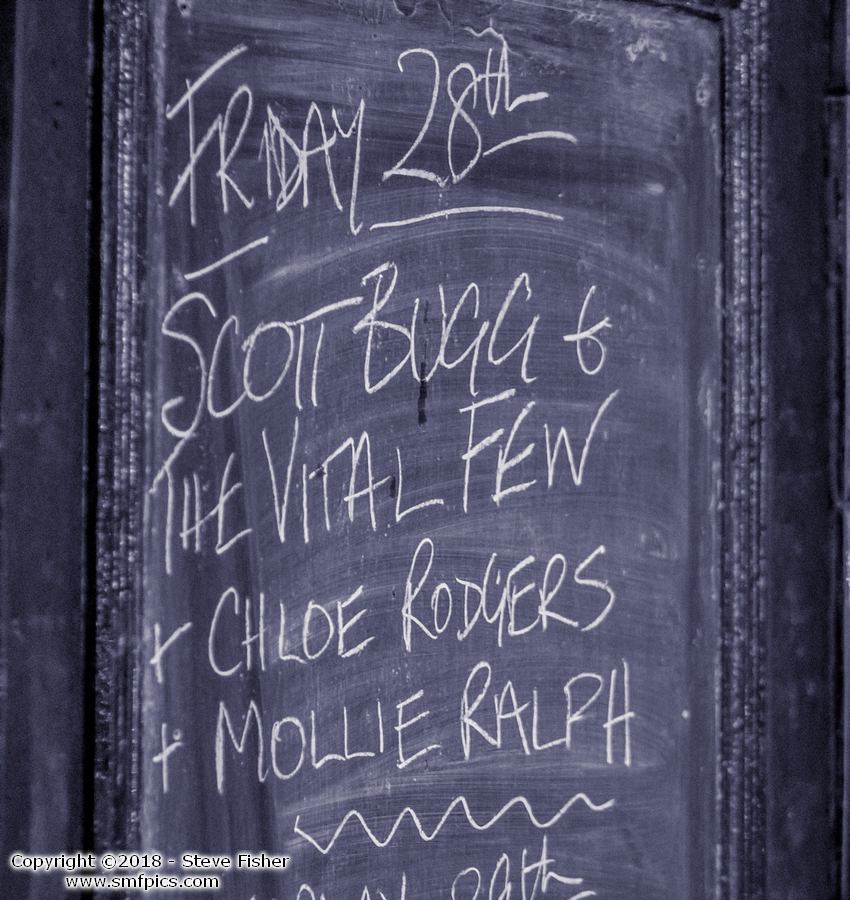 FRIDAY 28th
SCOTT BUGG &
THE VITAL FEW
+ CHLOE RODGERS
+ MOLLIE RALPH
Copyright ©2018 - Steve Fisher
www.smfpics.com